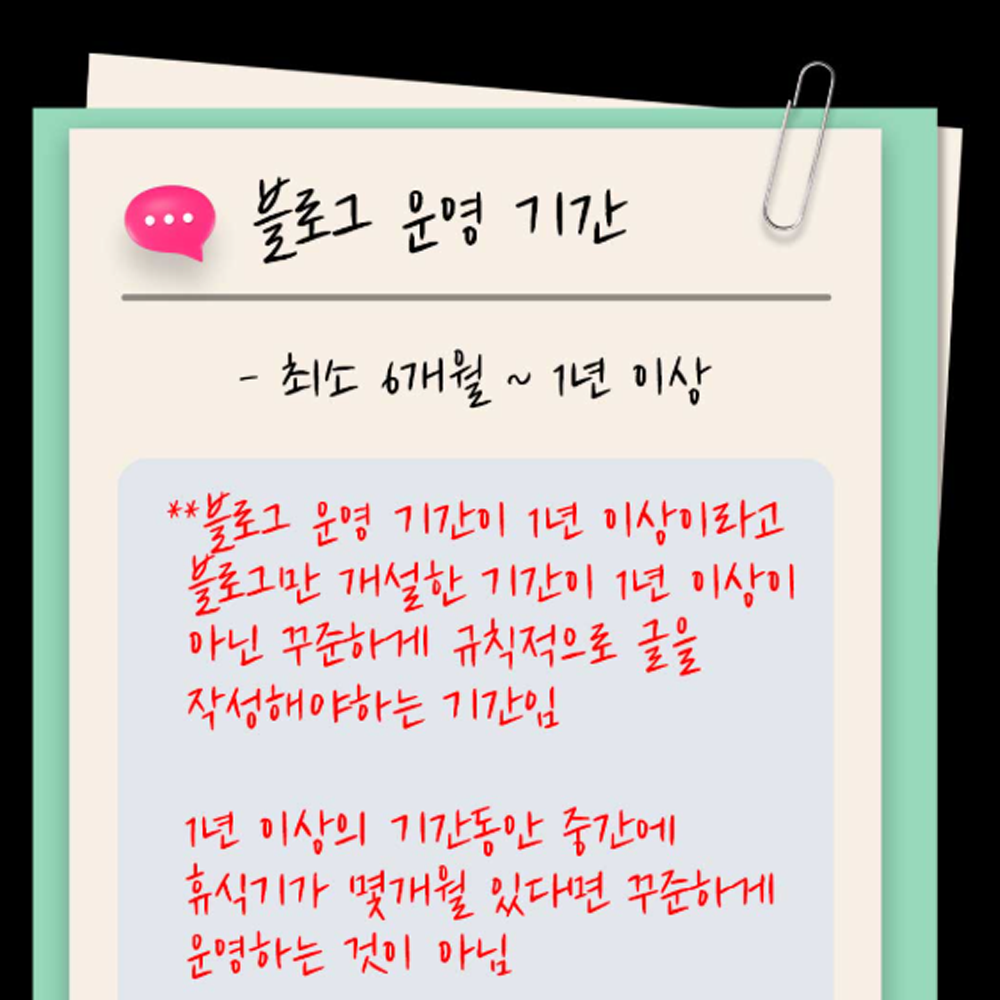 블로그 운영 기간
- 최소 6개월 ~ 1년 이상
**블로그 운영 기간이 1년 이상이라고
블로그만 개설한 기간이 1년 이상이
아닌 꾸준하게 규칙적으로 글을
작성해야하는 기간임
1년 이상의 기간동안 중간에
휴식기가 몇개월 있다면 꾸준하게
운영하는 것이 아님